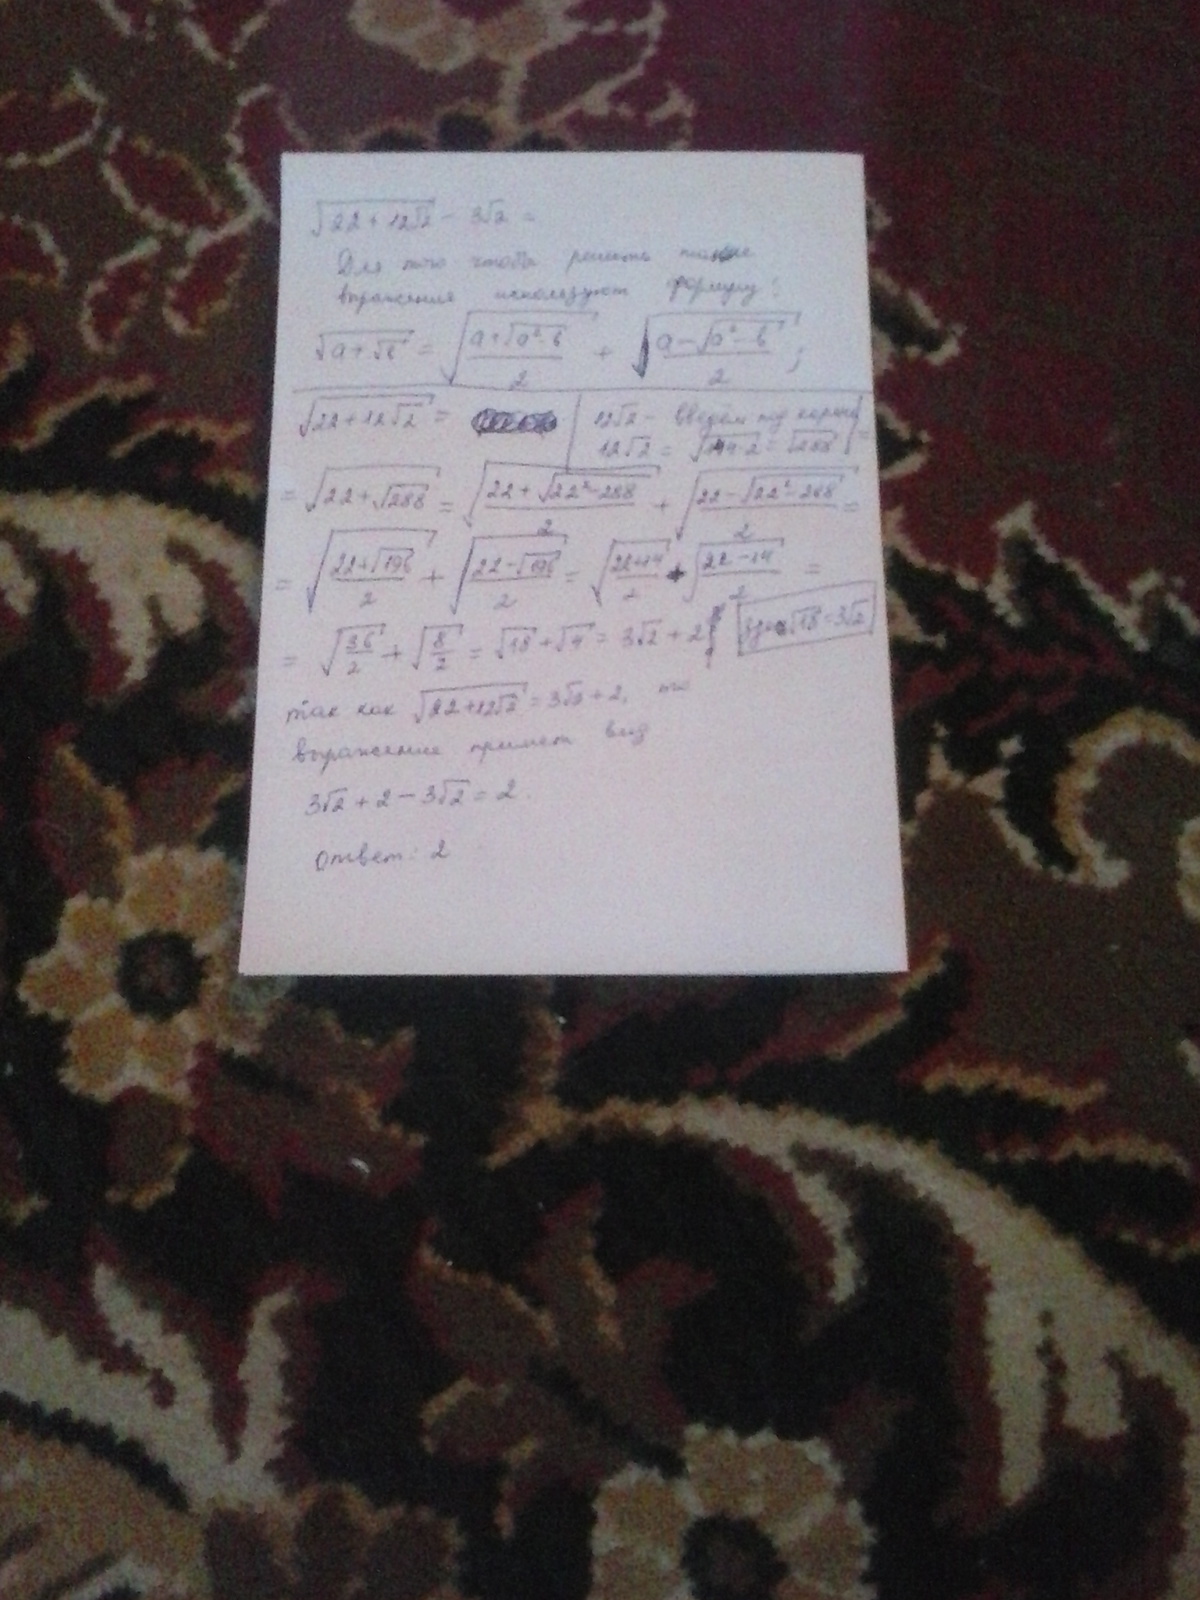 √(22 + 12√2) - 3√2 =
Для того чтобы решить такие
выражения используют формулу:
√(a + √b) = √((a + √(a² - b))/2) + √((a - √(a² - b))/2);
√(22 + 12√2) = | 12√2 - введём под корень
12√2 = √(144·2) = √288 | =
= √(22 + √288) = √((22 + √(22² - 288))/2) + √((22 - √(22² - 288))/2) =
= √((22 + √196)/2) + √((22 - √196)/2) = √((22 + 14)/2) + √((22 - 14)/2) =
= √(36/2) + √(8/2) = √18 + √4 = 3√2 + 2 √18 = 3√2
так как √(22 + 12√2) = 3√2 + 2, то
выражение примет вид
3√2 + 2 - 3√2 = 2.
Ответ: 2